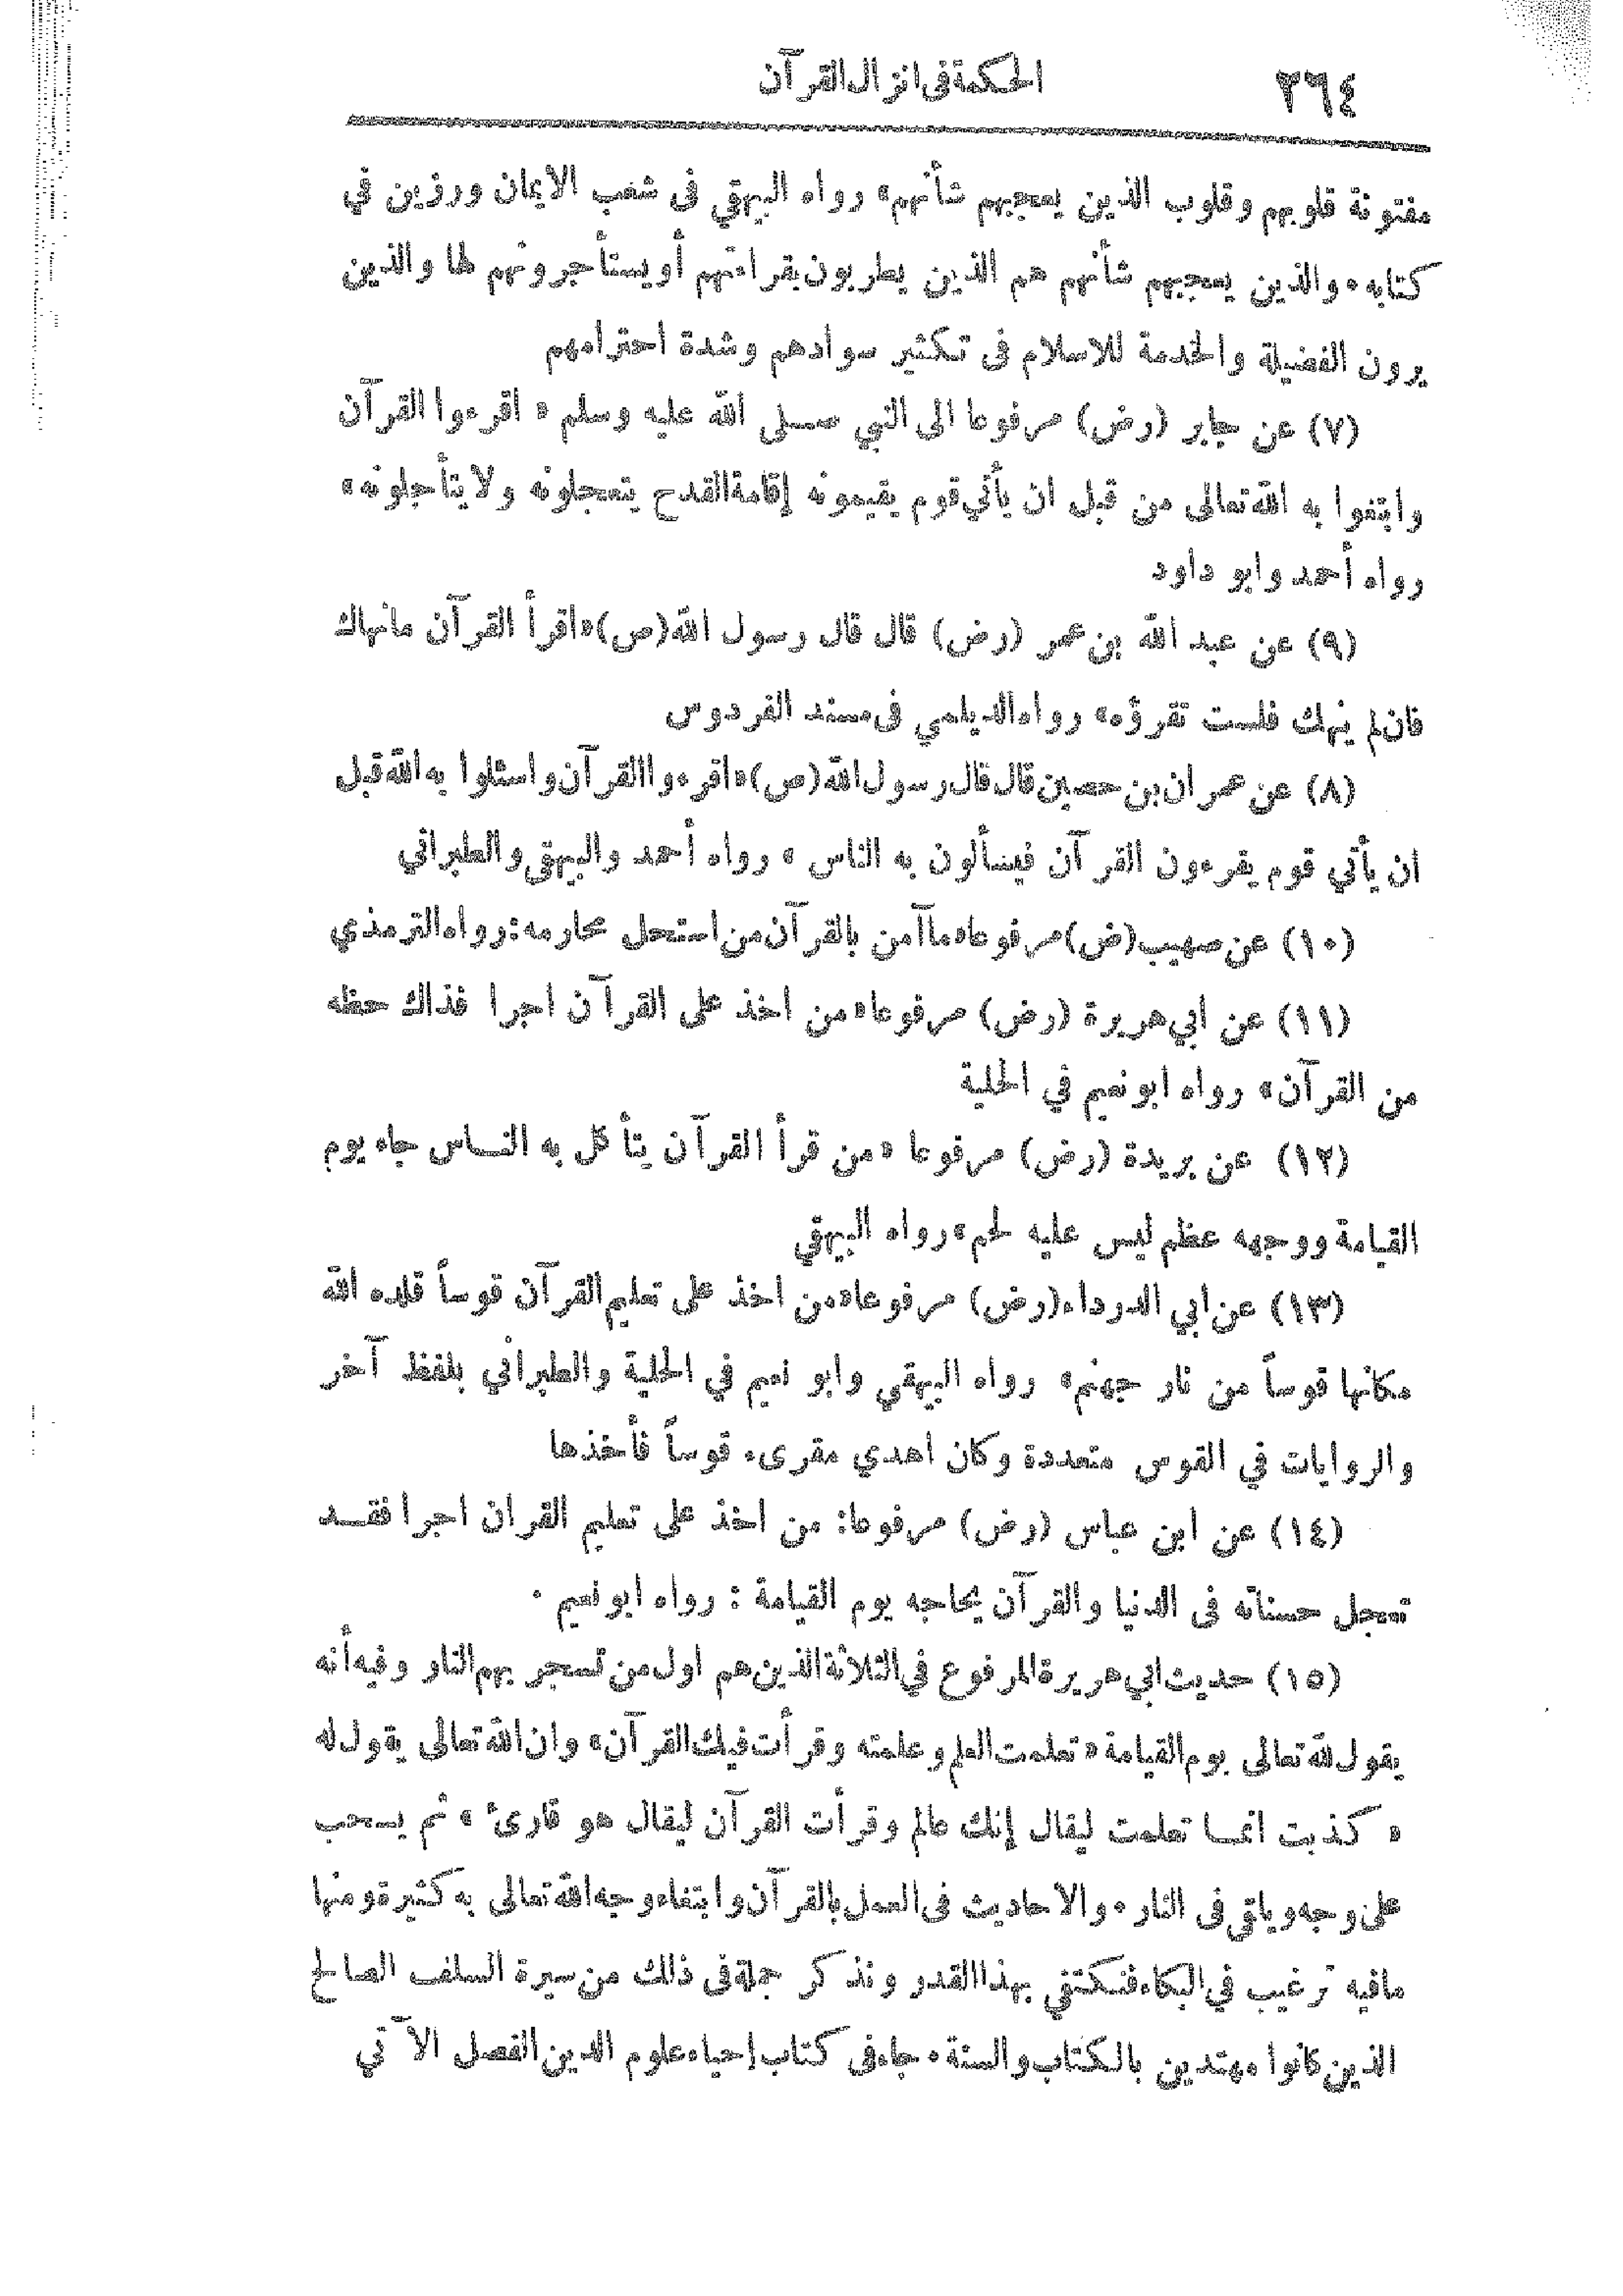 ٢٦٤ الحكمة فى انزال القرآن
مفتونة قلوبهم وقلوب الذين يعجبهم شأنهم» رواه البيهقي فى شعب الايمان ورزين في
كتابه. والذين يعجبهم شأنهم هم الذين يطربون بقراءتهم أو يستأجرونهم لها والذين
يرون الفضيلة والخدمة للاسلام فى تكثير سوادهم وشدة احترامهم
(٧) عن جابر (رض) مرفوعا الى النبي صلى الله عليه وسلم « اقرءوا القرآن
وابتغوا به الله تعالى من قبل ان يأتي قوم يقيمونه إقامة القدح يتعجلونه ولا يتأجلونه»
رواه أحمد وابو داود
(٩) عن عبد الله بن عمر (رض) قال قال رسول الله (ص) «اقرأ القرآن مانهاك
فان لم ينهك فلست تقرؤه» رواه الديلمي فى مسند الفردوس
(٨) عن عمران بن حصين قال قال رسول الله (ص) «اقرءوا القرآن واسئلوا به الله قبل
ان يأتي قوم يقرءون القرآن فيسألون به الناس » رواه أحمد والبيهقى والطبراني
(١٠) عن صهيب (ض) مرفوعا «ما آمن بالقرآن من استحل محارمه: رواه الترمذي
(١١) عن ابي هريرة (رض) مرفوعا «من اخذ على القرآن اجرا فذاك حظه
من القرآن» رواه ابو نعيم في الحلية
(١٢) عن بريدة (رض) مرفوعا «من قرأ القرآن يتأكل به النــاس جاء يوم
القيامة ووجهه عظم ليس عليه لحم» رواه البيهقي
(١٣) عن ابي الدرداء (رض) مرفوعا «من اخذ على تعليم القرآن قوساً قلده الله
مكانها قوساً من نار جهنم» رواه البيهقي وابو نعيم في الحلية والطبراني بلفظ آخر
والروايات في القوس متعددة وكان اهدي مقرىء قوساً فأخذها
(١٤) عن ابن عباس (رض) مرفوعا: من اخذ على تعليم القران اجرا فقــد
تعجل حسناته فى الدنيا والقرآن يحاجه يوم القيامة : رواه ابو نعيم .
(١٥) حديث ابي هريرة المرفوع في الثلاثة الذين هم اول من تسجر بهم النار وفيه أنه
يقول لله تعالى يوم القيامة « تعلمت العلم وعلمته وقرأت فيك القرآن» وان الله تعالى يقول له
« كذبت انمــا تعلمت ليقال إنك عالم وقرأت القرآن ليقال هو قارئ » ثم يسحب
على وجه ويلقى فى النار. والاحاديث فى العمل بالقرآن وابتغاء وجه الله تعالى به كثيرة ومنها
مافيه ترغيب في البكاء فنكتفي بهذا القدر ونذكر جملة فى ذلك من سيرة السلف الصالح
الذين كانوا مهتدين بالكتاب والسنة . جاء فى كتاب إحياء علوم الدين الفصل الآتي